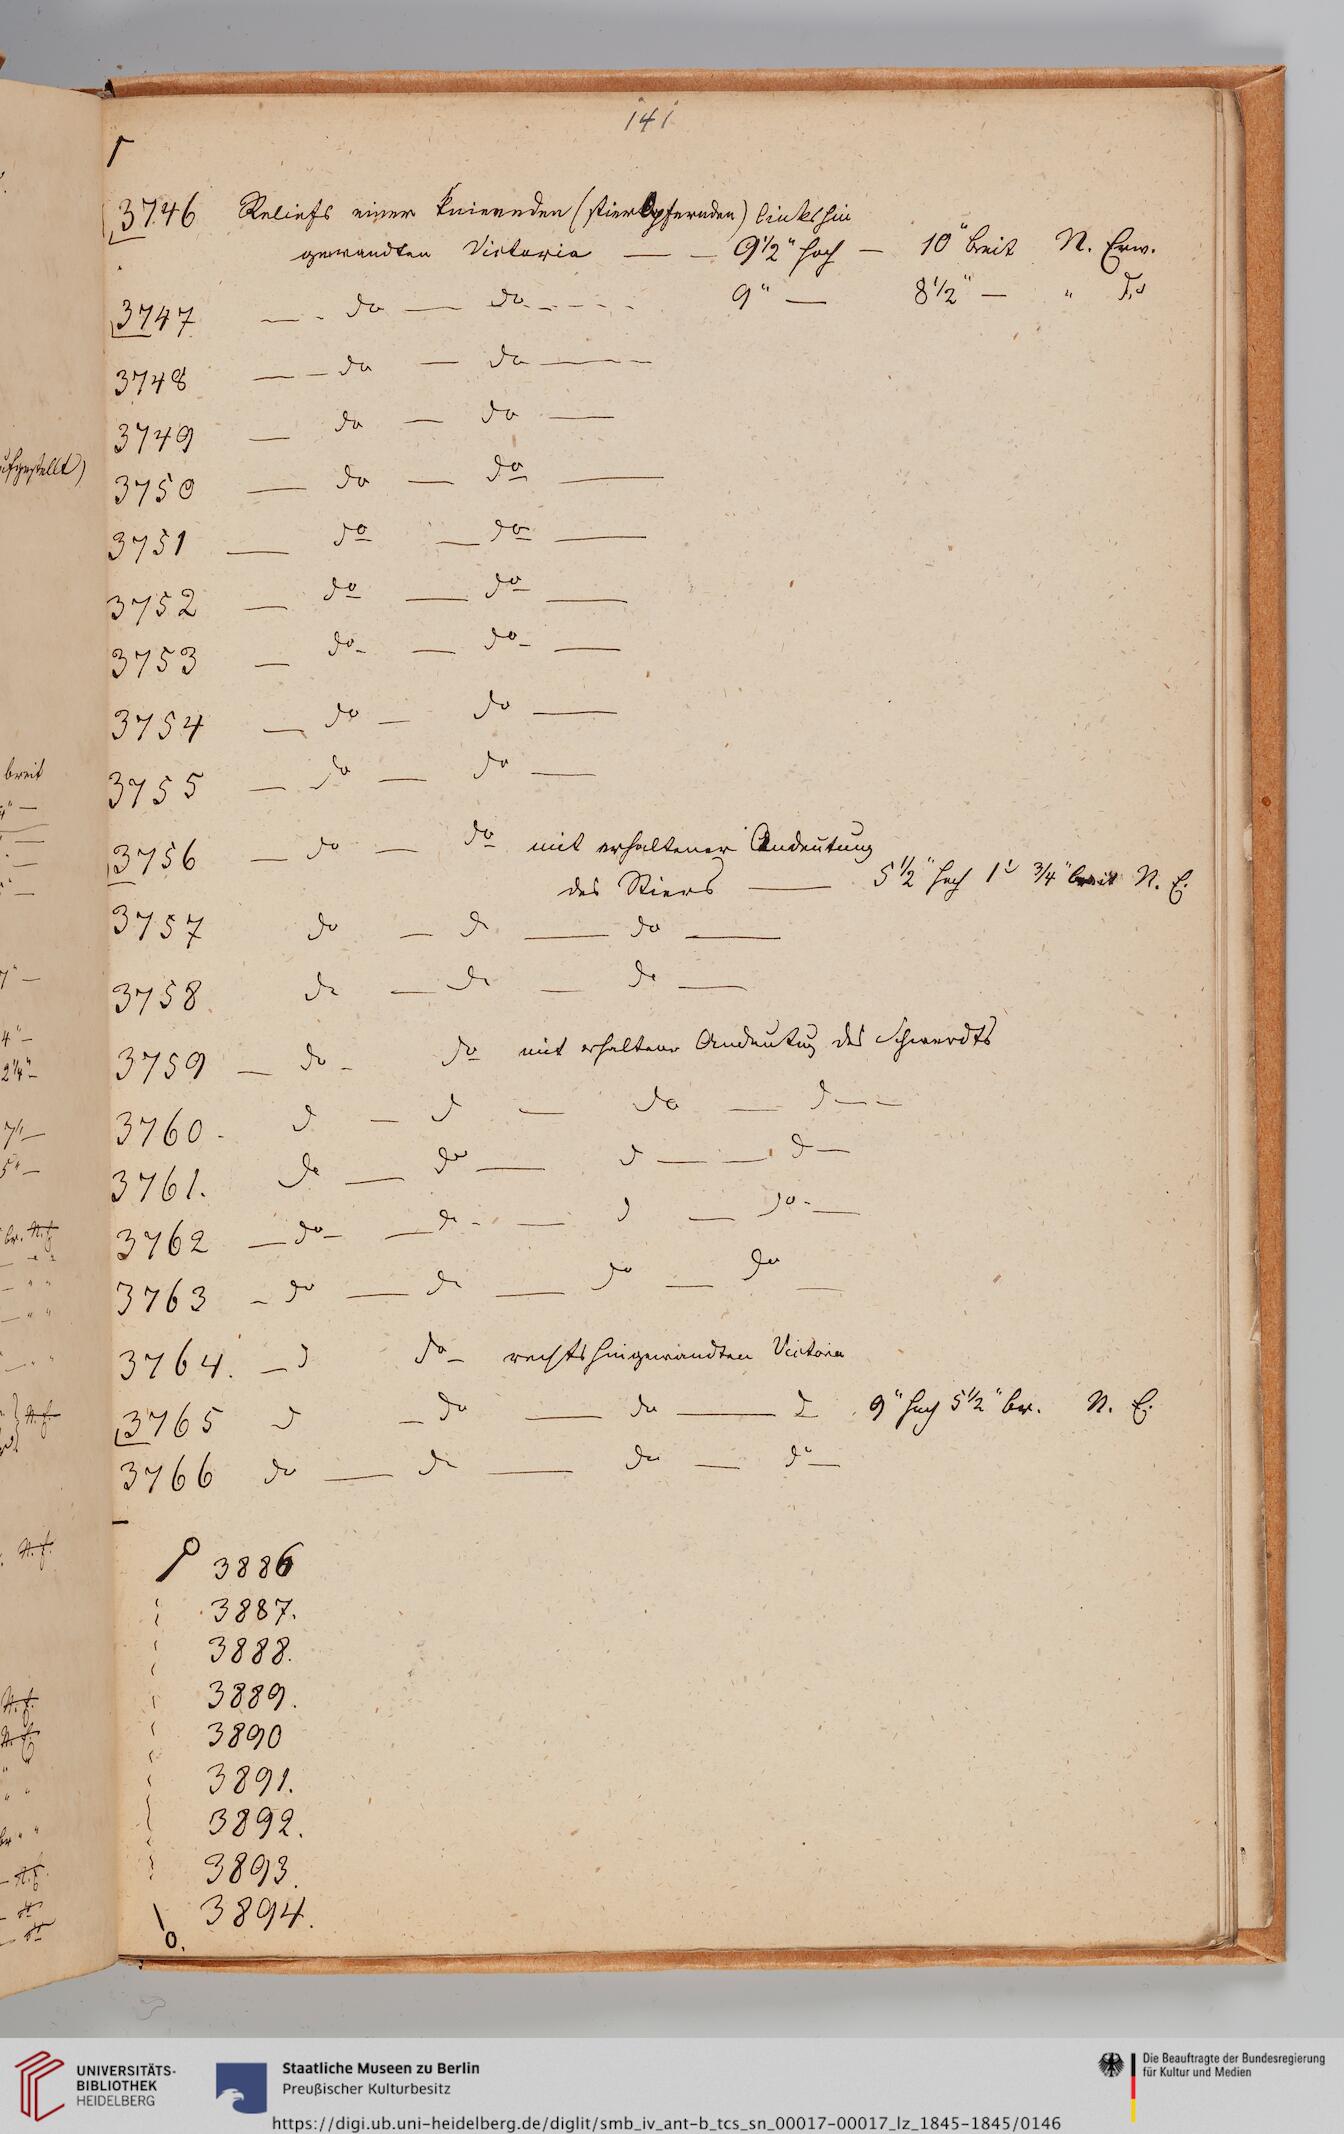 141
3746 Reliefs einer knieenden (stieropfernden) linkshin
gewandten Victoria — — 9 1/2" hoch — 10" breit N. Erw.
3747 — - do — do - - - - 9" — 8 1/2" — " do
3748 — — do — do — — —
3749 — do — do —
3750 — do — do —
3751 — do — do —
3752 — do — do —
3753 — do — do —
3754 — do — do —
3755 — do — do —
3756 — do — do mit erhaltener Andeutung
des Stiers — 5 1/2" hoch 1' 3/4" breit N. E.
3757 do — do — do —
3758 do — do — do —
3759 — do - do mit erhaltener Andeutung des Schwerdts
3760. d — d — do — d — —
3761. do — do — d — — d —
3762 — do — do - — d — do —
3763 - do — do — do — do —
3764. — d do — rechtshingewandten Victoria
3765 d — do — do — d 9" hoch 5 1/2" br. N. E.
3766 do — do — do — do —
3886
3887.
3888.
3889.
3890
3891.
3892.
3893.
3894.
aufgestellt)
breit
4" —
2 1/4" —
7" —
5" —
br. N. E.
UNIVERSITÄTS-
BIBLIOTHEK
HEIDELBERG
Staatliche Museen zu Berlin
Preußischer Kulturbesitz
Die Beauftragte der Bundesregierung
für Kultur und Medien
https://digi.ub.uni-heidelberg.de/diglit/smb_iv_ant-b_tcs_sn_00017-00017_lz_1845-1845/0146